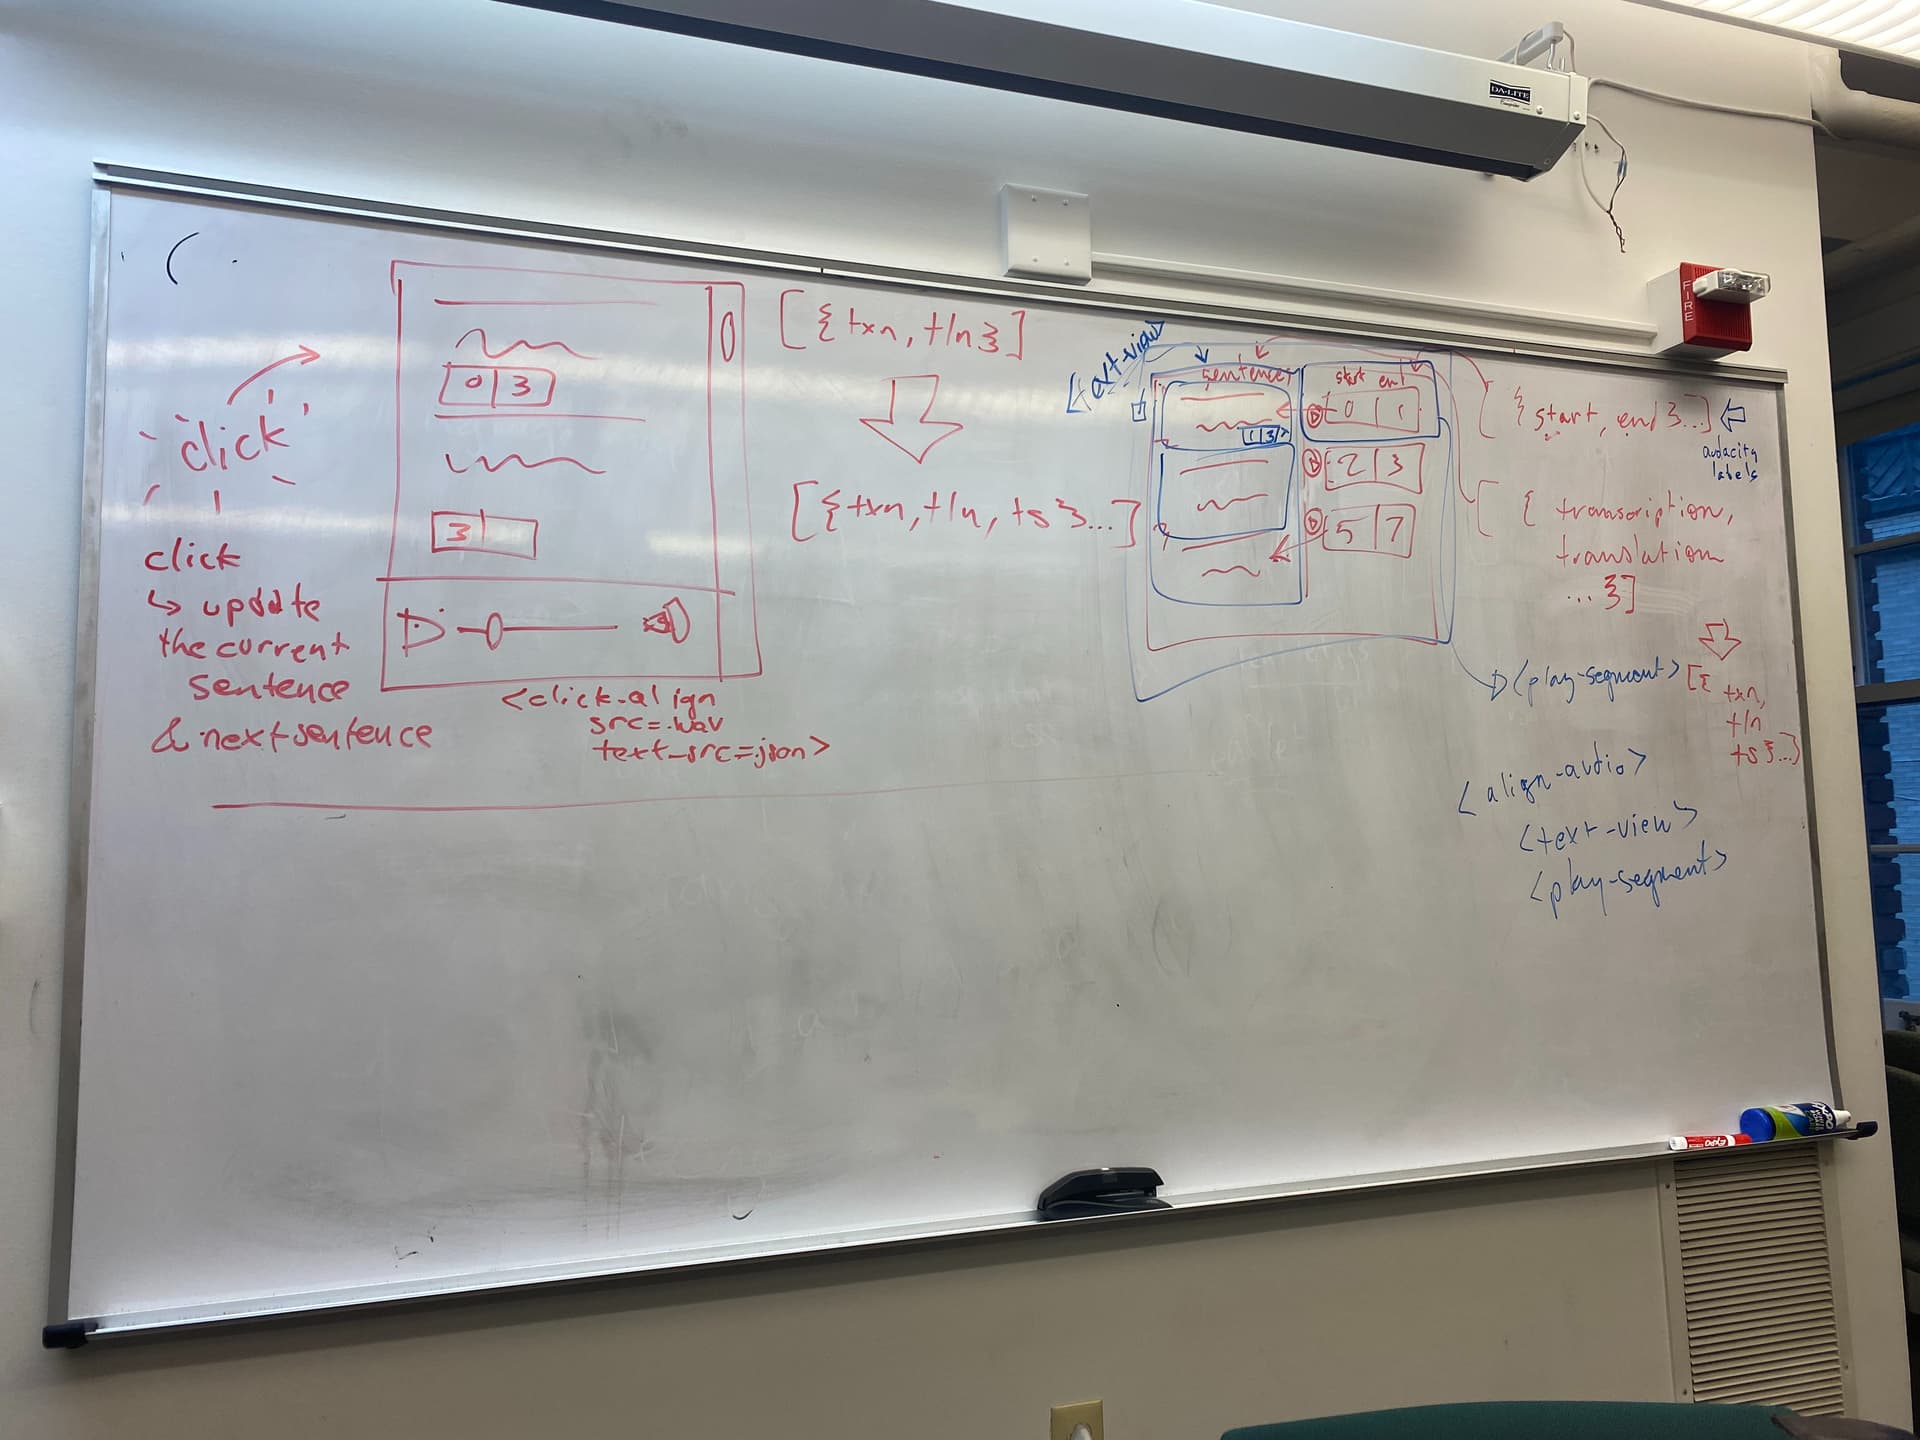 DA-LITE
FIRE
click
click
↳ update
the current
sentence
& next sentence
0 | 3
3 |
<click-align
src=.wav
text_src=.json>
[{txn, tln}]
[{txn, tln, ts}...]
<text-view>
sentences
start end
0 | 1
1 | 3
2 | 3
5 | 7
[{start, end}...]
audacity
labels
[{transcription,
translation
...}]
<play-segment>
[{txn,
tln
ts}...]
<align-audio>
<text-view>
<play-segment>
EXPO